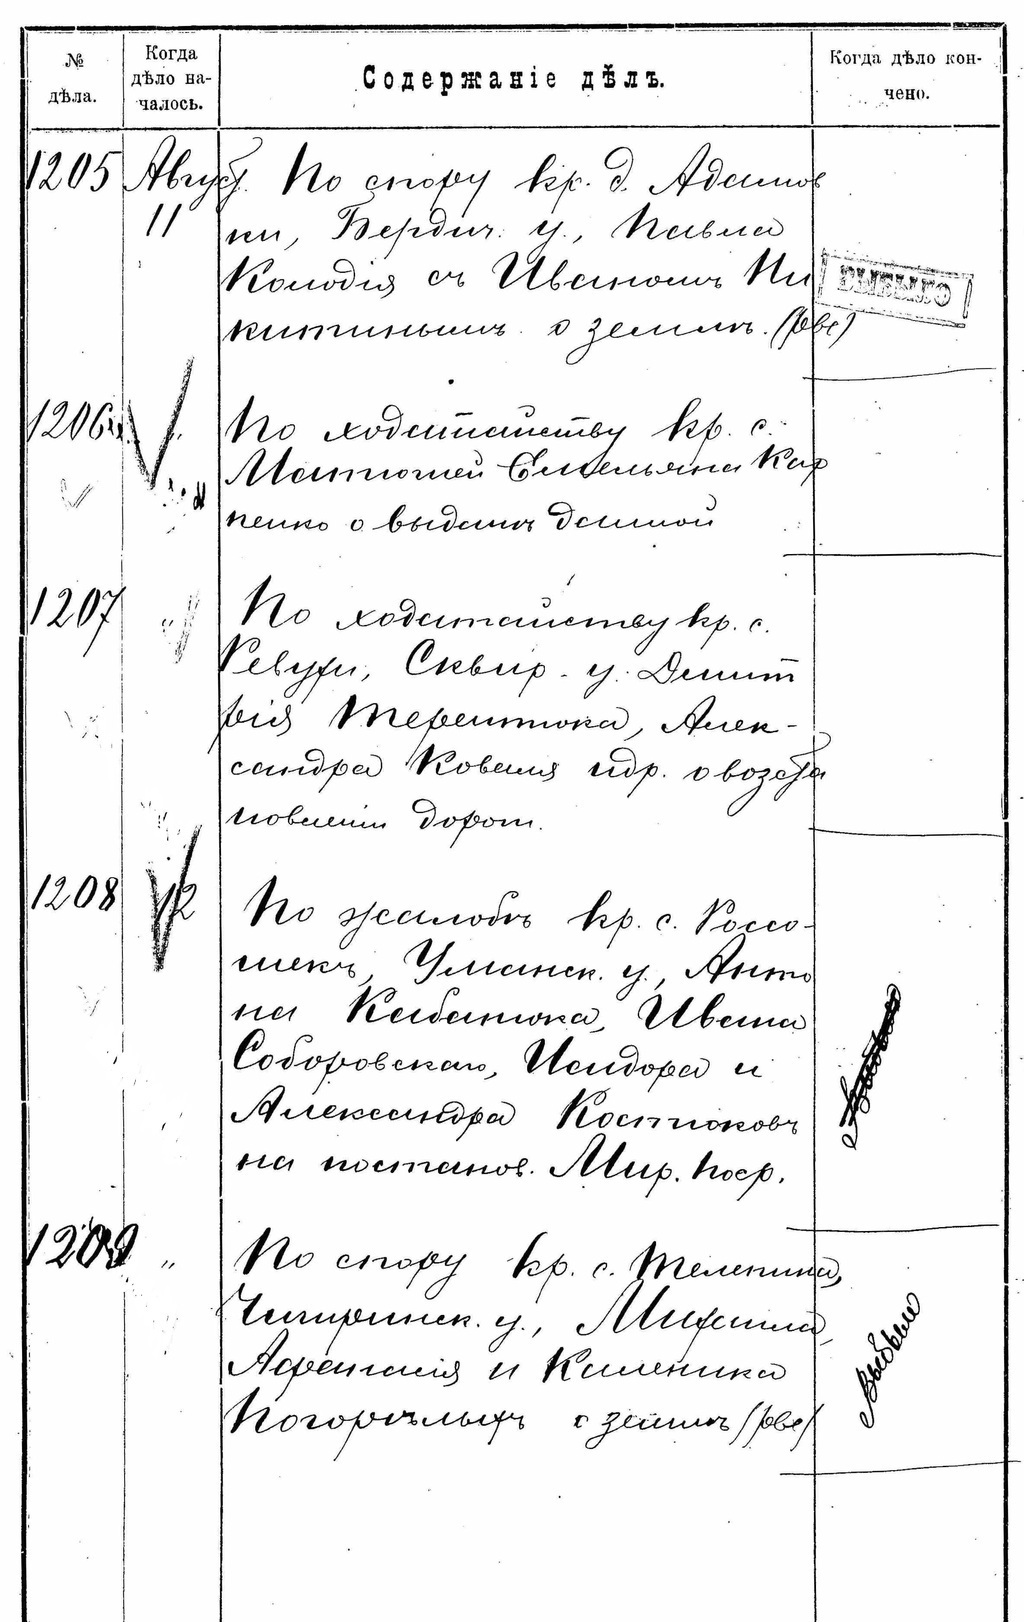 № дѣла.
Когда дѣло началось.
Содержаніе дѣлъ.
Когда дѣло кончено.
1205 Август. По спору кр. д. Адамов
11 ки, Бердич. у., Павла
Колодія съ Иваномъ Ни
китинымъ о землѣ.
1206 По ходатайству кр. с.
Матюшей Емельяна Кар
пенко о выдачѣ данной
1207 По ходатайству кр. с.
Ревухи, Сквир. у. Димит
рія Терентюка, Алек-
сандра Коваля и др. о возста
новленіи дороги.
1208 12 По жалобѣ кр. с. Россо-
шекъ, Уманск. у., Анто
на Кабанюка, Ивана
Соборовскаго, Исидора и
Александра Костюковъ
на постанов. Мир. Поср.
1209 " По спору кр. с. Телепина,
Чигиринск. у., Михаила,
Афанасія и Каленика
Погорѣлыхъ о землѣ
Выбыло